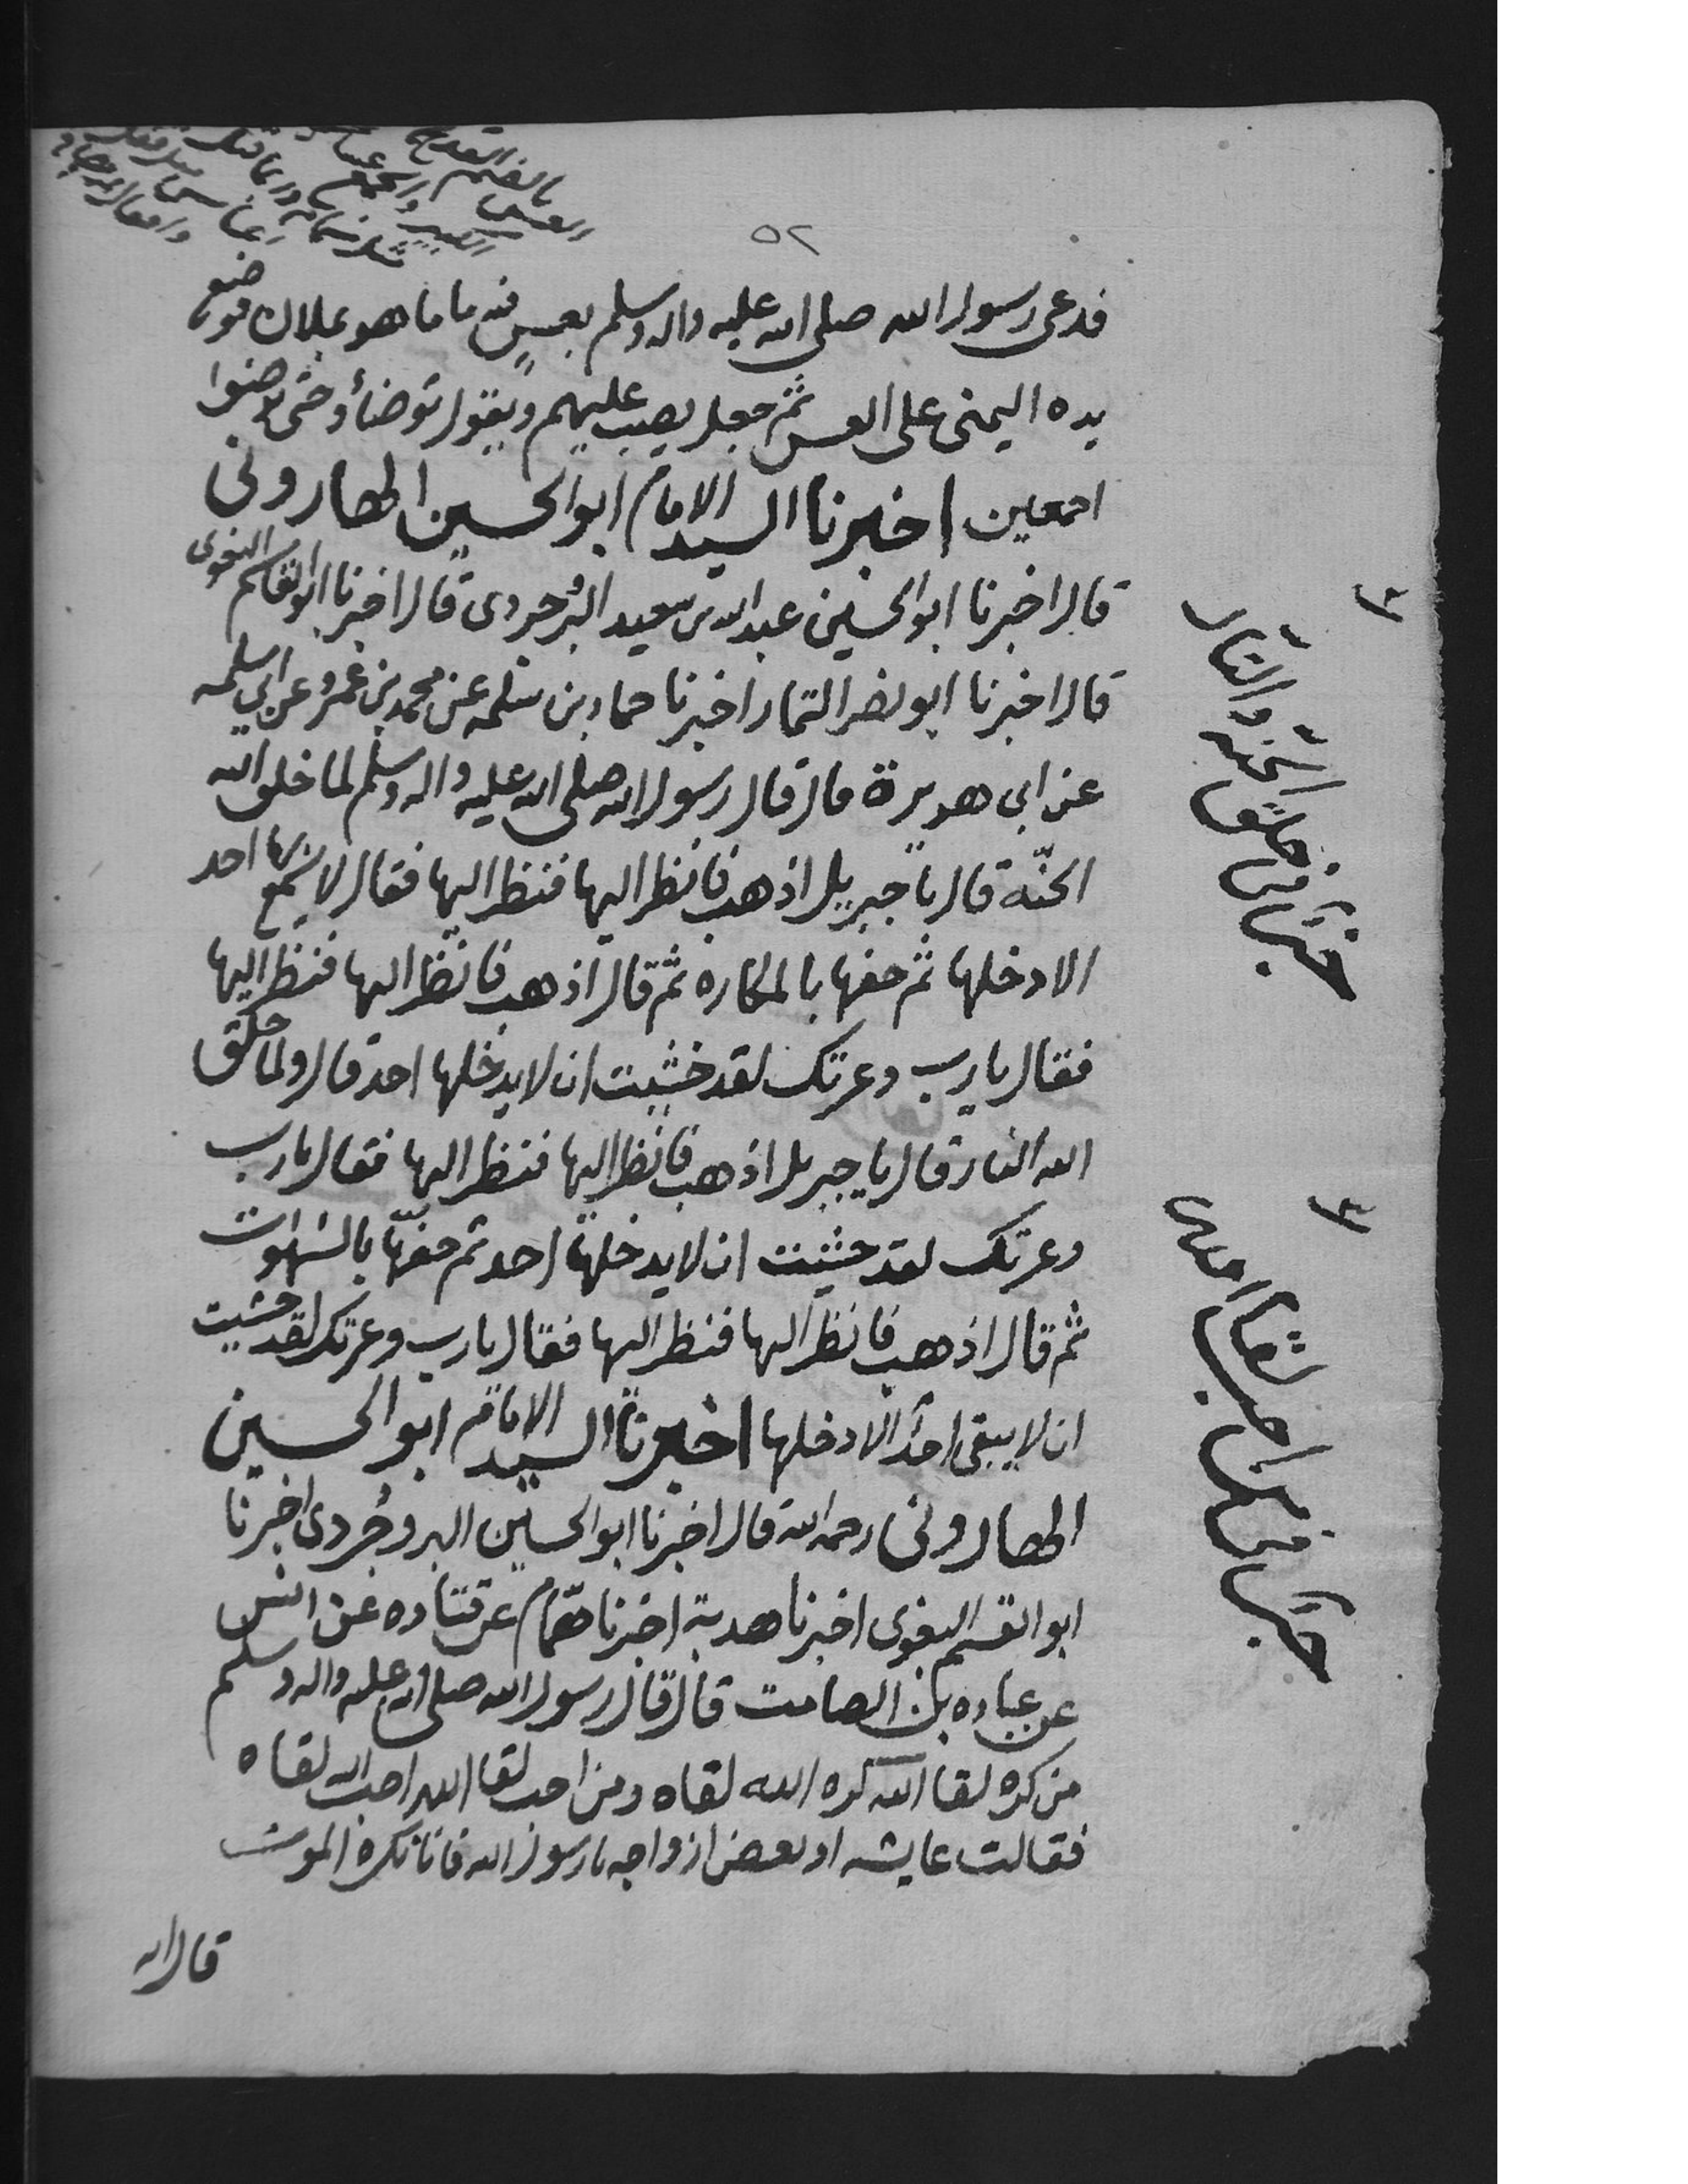 بالضم القدح
العس
٥٢
فدعى رسول الله صلى الله عليه واله وسلم بعس فيه ما ما هو بملآن فوضع
يده اليمنى على العس ثم جعل يصب عليهم ويقول توضأوا حتى توضوا
اجمعين اخبرنا السيد الامام ابو الحسين الهاروني
قال اخبرنا ابو الحسين عبد الله بن سعيد البروجردي قال اخبرنا ابو القاسم البغوي
قال اخبرنا ابو نصر التمار اخبرنا حماد بن سلمه عن محمد بن عمرو عن ابي سلمه
عن ابي هريرة قال قال رسول الله صلى الله عليه واله وسلم لما خلق الله
الجنّة قال يا جبريل اذهب فانظر اليها فنظر اليها فقال لا يسمع بها احد
الا دخلها ثم حفها بالمكاره ثم قال اذهب فانظر اليها فنظر اليها
فقال يا رب وعزتك لقد خشيت ان لا يدخلها احد قال ولما خلق
الله النار قال يا جبريل اذهب فانظر اليها فنظر اليها فقال يا رب
وعزتك لقد خشيت ان لا يدخلها احد ثم حفها بالشهوات
ثم قال اذهب فانظر اليها فنظر اليها فقال يا رب وعزتك لقد خشيت
ان لا يبقى احد الا دخلها اخبرنا السيد الامام ابو الحسين
الهاروني رحمه الله قال اخبرنا ابو الحسين البروجردي اخبرنا
ابو القسم البغوي اخبرنا هدبة اخبرنا همّام عن قتاده عن انس
عن عباده بن الصامت قال قال رسول الله صلى الله عليه واله وسلم
من كره لقا الله كره الله لقاه ومن احب لقا الله احب الله لقاه
فقالت عايشه او بعض ازواجه يا رسول الله فانا نكره الموت
قال الله
خبر في خلق الجنه والنّار
خبر في من احب لقا الله